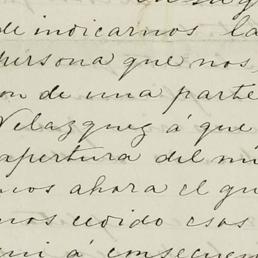 de indicarnos la
persona que nos
on de una parte
Velazquez á que
apertura del mu
mos ahora el gu
mos cedido esos
á consecuen